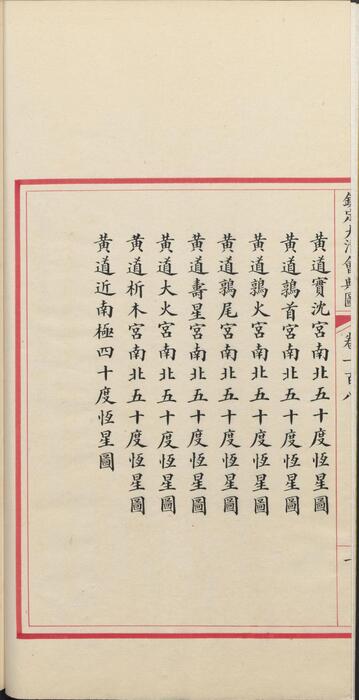 欽定大清會典圖 卷一百八 一
黃道實沈宮南北五十度恆星圖
黃道鶉首宮南北五十度恆星圖
黃道鶉火宮南北五十度恆星圖
黃道鶉尾宮南北五十度恆星圖
黃道壽星宮南北五十度恆星圖
黃道大火宮南北五十度恆星圖
黃道析木宮南北五十度恆星圖
黃道近南極四十度恆星圖